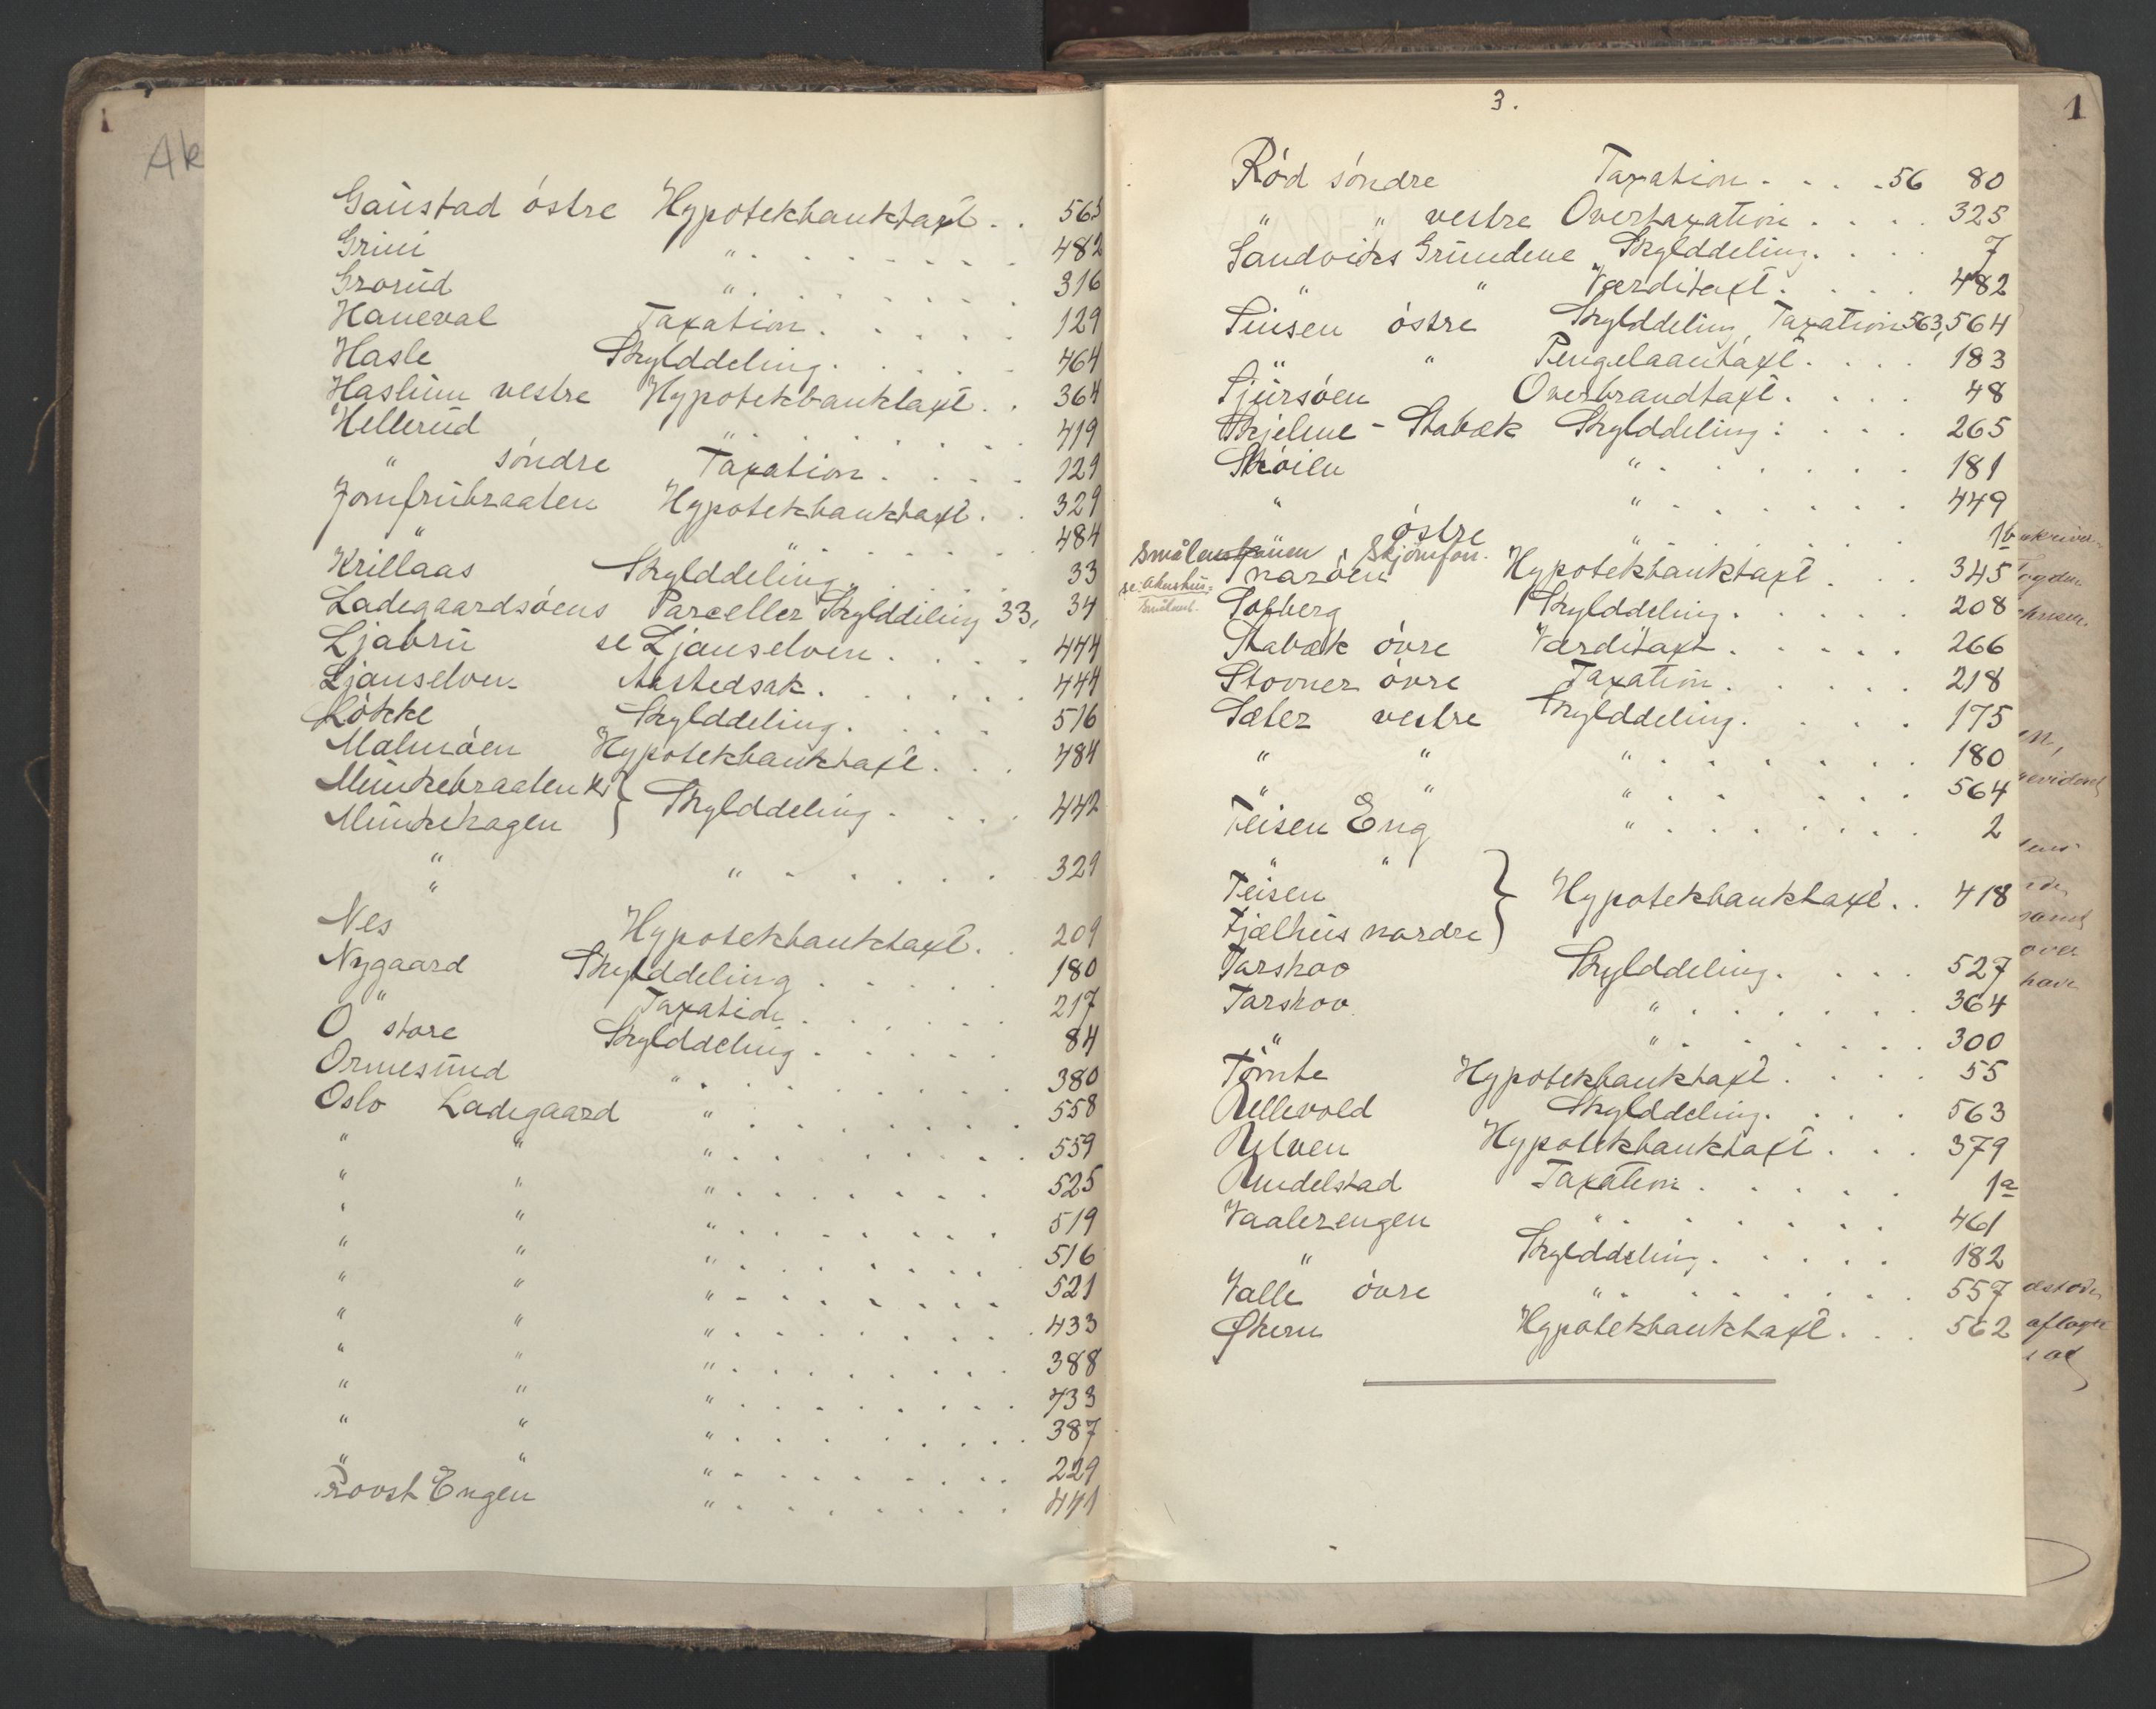 1
Ak
Gaustad østre Hypotekbanktaxt . . 565
Grini " . . . . . . . . 482
Grorud " . . . . . . . . 316
Haneval Taxation . . . . . . 129
Hasle Skylddeling . . . . . . 464
Haslum vestre Hypotekbanktaxt . . 364
Hellerud " . . . . . . . . 419
" søndre Taxation . . . . . 129
Jomfrubraaten Hypotekbanktaxt . . 329
" " . . . . . . . . 484
Krillaas Skylddeling . . . . . . 33
Ladegaardsøens Parceller Skylddeling 33, 34
Ljabru se Ljanselven . . . . . 444
Ljanselven Aastedsak . . . . . . 444
Løkke Skylddeling . . . . . 516
Malmøen Hypotekbanktaxt . . . 484
Munkebraaten &
Munkehagen } Skylddeling . . . . 442
" " . . . . . . . 329
"
Nes Hypotekbanktaxt . . 209
Nygaard Skylddeling . . . . . 180
" Taxation . . . . . . 217
Ø store Skylddeling . . . . . 84
Ormesund " . . . . . . . . 380
Oslo Ladegaard " . . . . . . . . 558
" " " . . . . . . . . 559
" " " . . . . . . . . 525
" " " . . . . . . . . 519
" " " . . . . . . . . 516
" " " . . . . . . . . 521
" " " . . . . . . . . 433
" " " . . . . . . . . 388
" " " . . . . . . . . 433
" " " . . . . . . . . 387
" " " . . . . . . . . 229
Provst Engen " . . . . . . . . 441
3.
1
Rød søndre Taxation . . . . 56 80
" " vestre Overtaxation . . . . 325
Sandvids Grundene Skylddeling . . . . 7
" " Værditaxt . . . . 482
Sinsen østre Skylddeling, Taxation 563, 564
" " Pengelaantaxt . . . . 183
Sjursøen Overbrandtaxt . . . . 48
Skjelme - Stabæk Skylddeling : . . . 265
Skøien " . . . . . . . 181
" " . . . . . . . 449
østre " . . . . . . . 1b
Snarøen Hypotekbanktaxt . . . 345
se Akershus
Solberg Skylddeling . . . . . 208
Stabæk øvre Værditaxt . . . . . 266
Stovner øvre Taxation . . . . . 218
Sæter vestre Skylddeling . . . . 175
" " " . . . . . . . 180
" " " . . . . . . . 564
Teisen Eng " . . . . . . . 2
" "
Teisen
Fjælhus nordre } Hypotekbanktaxt . . 418
Torshov Skylddeling . . . . 527
Torshov " . . . . . . . 364
" " . . . . . . . 300
Tømte Hypotekbanktaxt . . . . 55
Ullevold Skylddeling . . . . 563
Ulven Hypotekbanktaxt . . . 379
Undelstad Taxation . . . . . 1a
Vaalerengen " . . . . . . . 461
" Skylddeling . . . . . 182
Valle øvre " . . . . . . . 557
Økern Hypotekbanktaxt . . . 562